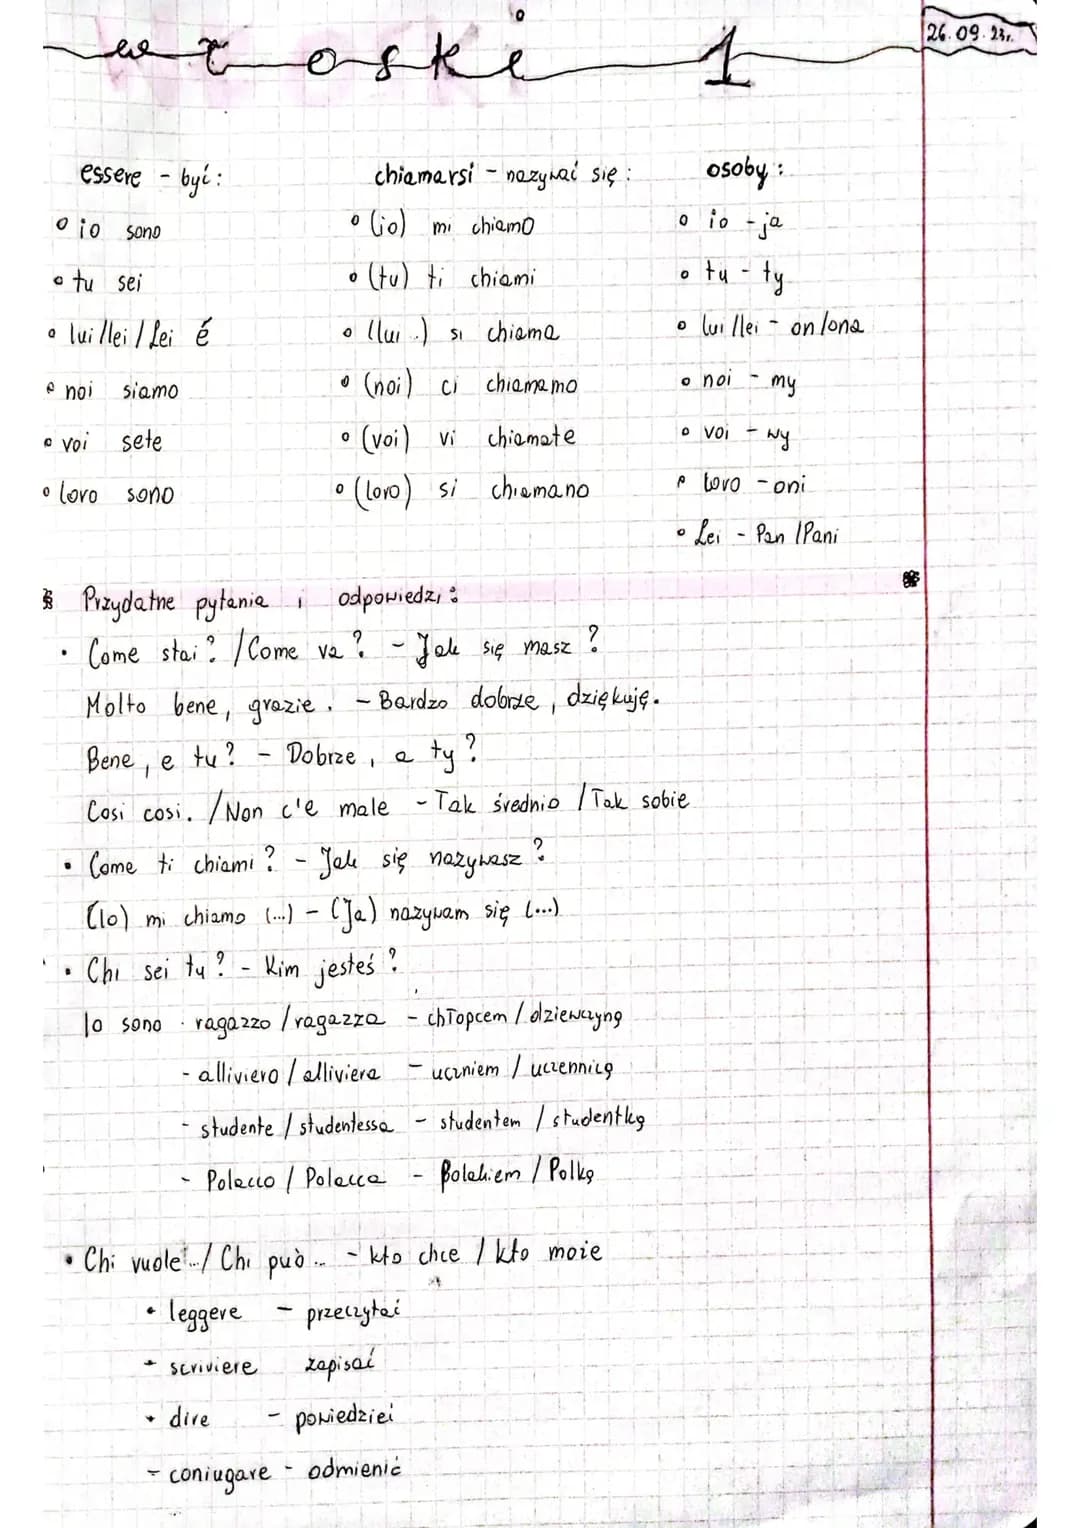 włoski 1
26.09.23r.
essere - być:
io sono
tu sei
lui/lei/Lei é
noi siamo
voi sete
loro sono
chiamarsi - nazywać się:
(io) mi chiamo
(tu) ti chiami
(lui..) si chiama
(noi) ci chiamamo
(voi) vi chiamate
(loro) si chiamano
osoby:
io - ja
tu - ty
lui/lei - on/ona
noi - my
voi - wy
loro - oni
Lei - Pan/Pani
Przydatne pytania i odpowiedzi:
Come stai? /Come va? - Jak się masz?
Molto bene, grazie. - Bardzo dobrze, dziękuję.
Bene, e tu? - Dobrze, a ty?
Cosi cosi. /Non c'e male - Tak średnio /Tak sobie
Come ti chiami? - Jak się nazywasz?
(Io) mi chiamo (...) - (Ja) nazywam się (...)
Chi sei tu? - Kim jesteś?
Io sono · ragazzo /ragazza - chłopcem / dziewczyną
- alliviero / alliviera - uczniem / uczennicą
- studente / studentessa - studentem / studentką
- Polacco / Polacca - Polakiem / Polką
Chi vuole.. / Chi può .. - kto chce / kto może
leggere - przeczytać
scriviere zapisać
dire - powiedzieć
- coniugare - odmienić